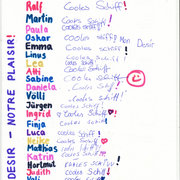 DESIR - NOTRE PLAISIR!
Ralf Cooles Schiff!
Martin Cooles Schiff!
Paula Cooles Schiff!
Oskar cooles schiff! Mon Desir
Emma COOLES SCHIFF!
Linus Cooles Schiff!
Lea Cooles Schiff!
Alti Cooles Schiff!
Sabine Cooles Schiff!
Daniela Cooles Schiff!
Volli Cooles Schiff!
Jürgen Cooles Schiff!
Ingrid Cooles Schiff!
Finja Cooles Schiff!
Luca Cooles Schiff!
Heike Cooles Schiff!
Mathos
Katrin Cooles Schiff!
Hartmut COOLES SCHIFF!
Judith Cooles Schiff!